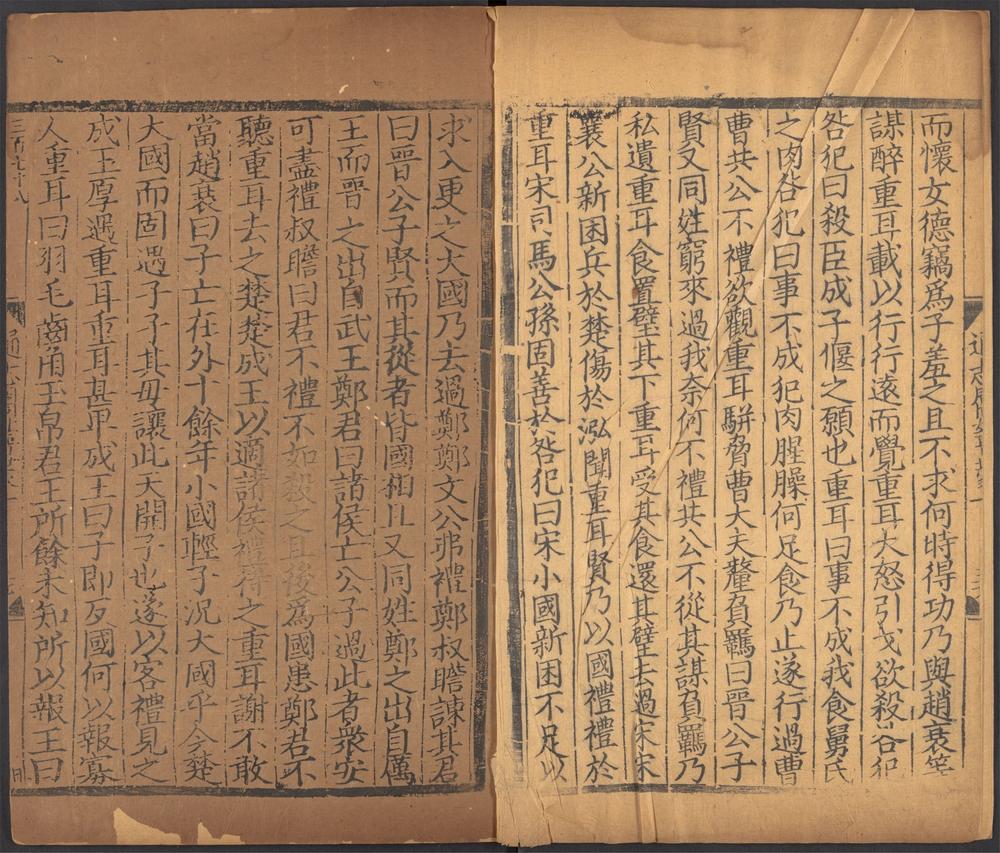 而懷女德竊爲子羞之且不求何時得功乃與趙衰等
謀醉重耳載以行行遠而覺重耳大怒引戈欲殺咎犯
咎犯曰殺臣成子偃之願也重耳曰事不成我食舅氏
之肉咎犯曰事不成犯肉腥臊何足食乃止遂行過曹
曹共公不禮欲觀重耳駢脅曹大夫釐負羈曰晉公子
賢又同姓窮來過我柰何不禮共公不從其謀負羈乃
私遺重耳食置璧其下重耳受其食還其璧去過宋宋
襄公新困兵於楚傷於泓聞重耳賢乃以國禮禮於
重耳宋司馬公孫固善於咎犯曰宋小國新困不足以
求入更之大國乃去過鄭鄭文公弗禮鄭叔瞻諫其君
曰晉公子賢而其從者皆國相且又同姓鄭之出自厲
王而晉之出自武王鄭君曰諸侯亡公子過此者衆安
可盡禮叔瞻曰君不禮不如殺之且後爲國患鄭君不
聽重耳去之楚楚成王以適諸侯禮待之重耳謝不敢
當趙衰曰子亡在外十餘年小國輕子況大國乎今楚
大國而固遇子子其毋讓此天開子也遂以客禮見之
成王厚遇重耳重耳甚卑成王曰子即反國何以報寡
人重耳曰羽毛齒角玉帛君王所餘未知所以報王曰